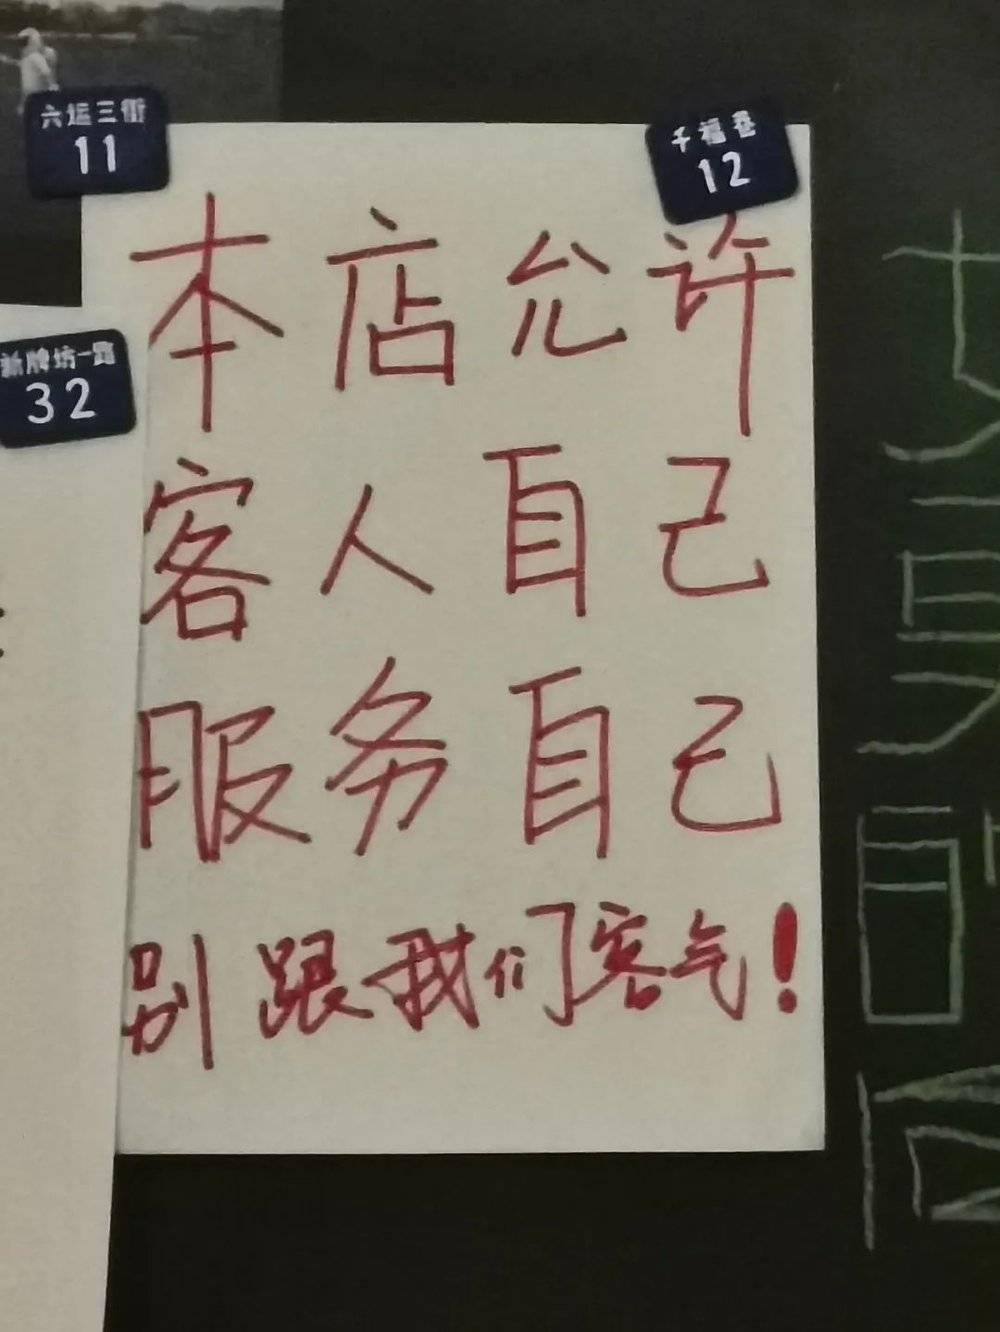 六运三街
11
千福巷
12
新牌坊一路
32
本店允许
客人自己
服务自己
别跟我们客气!